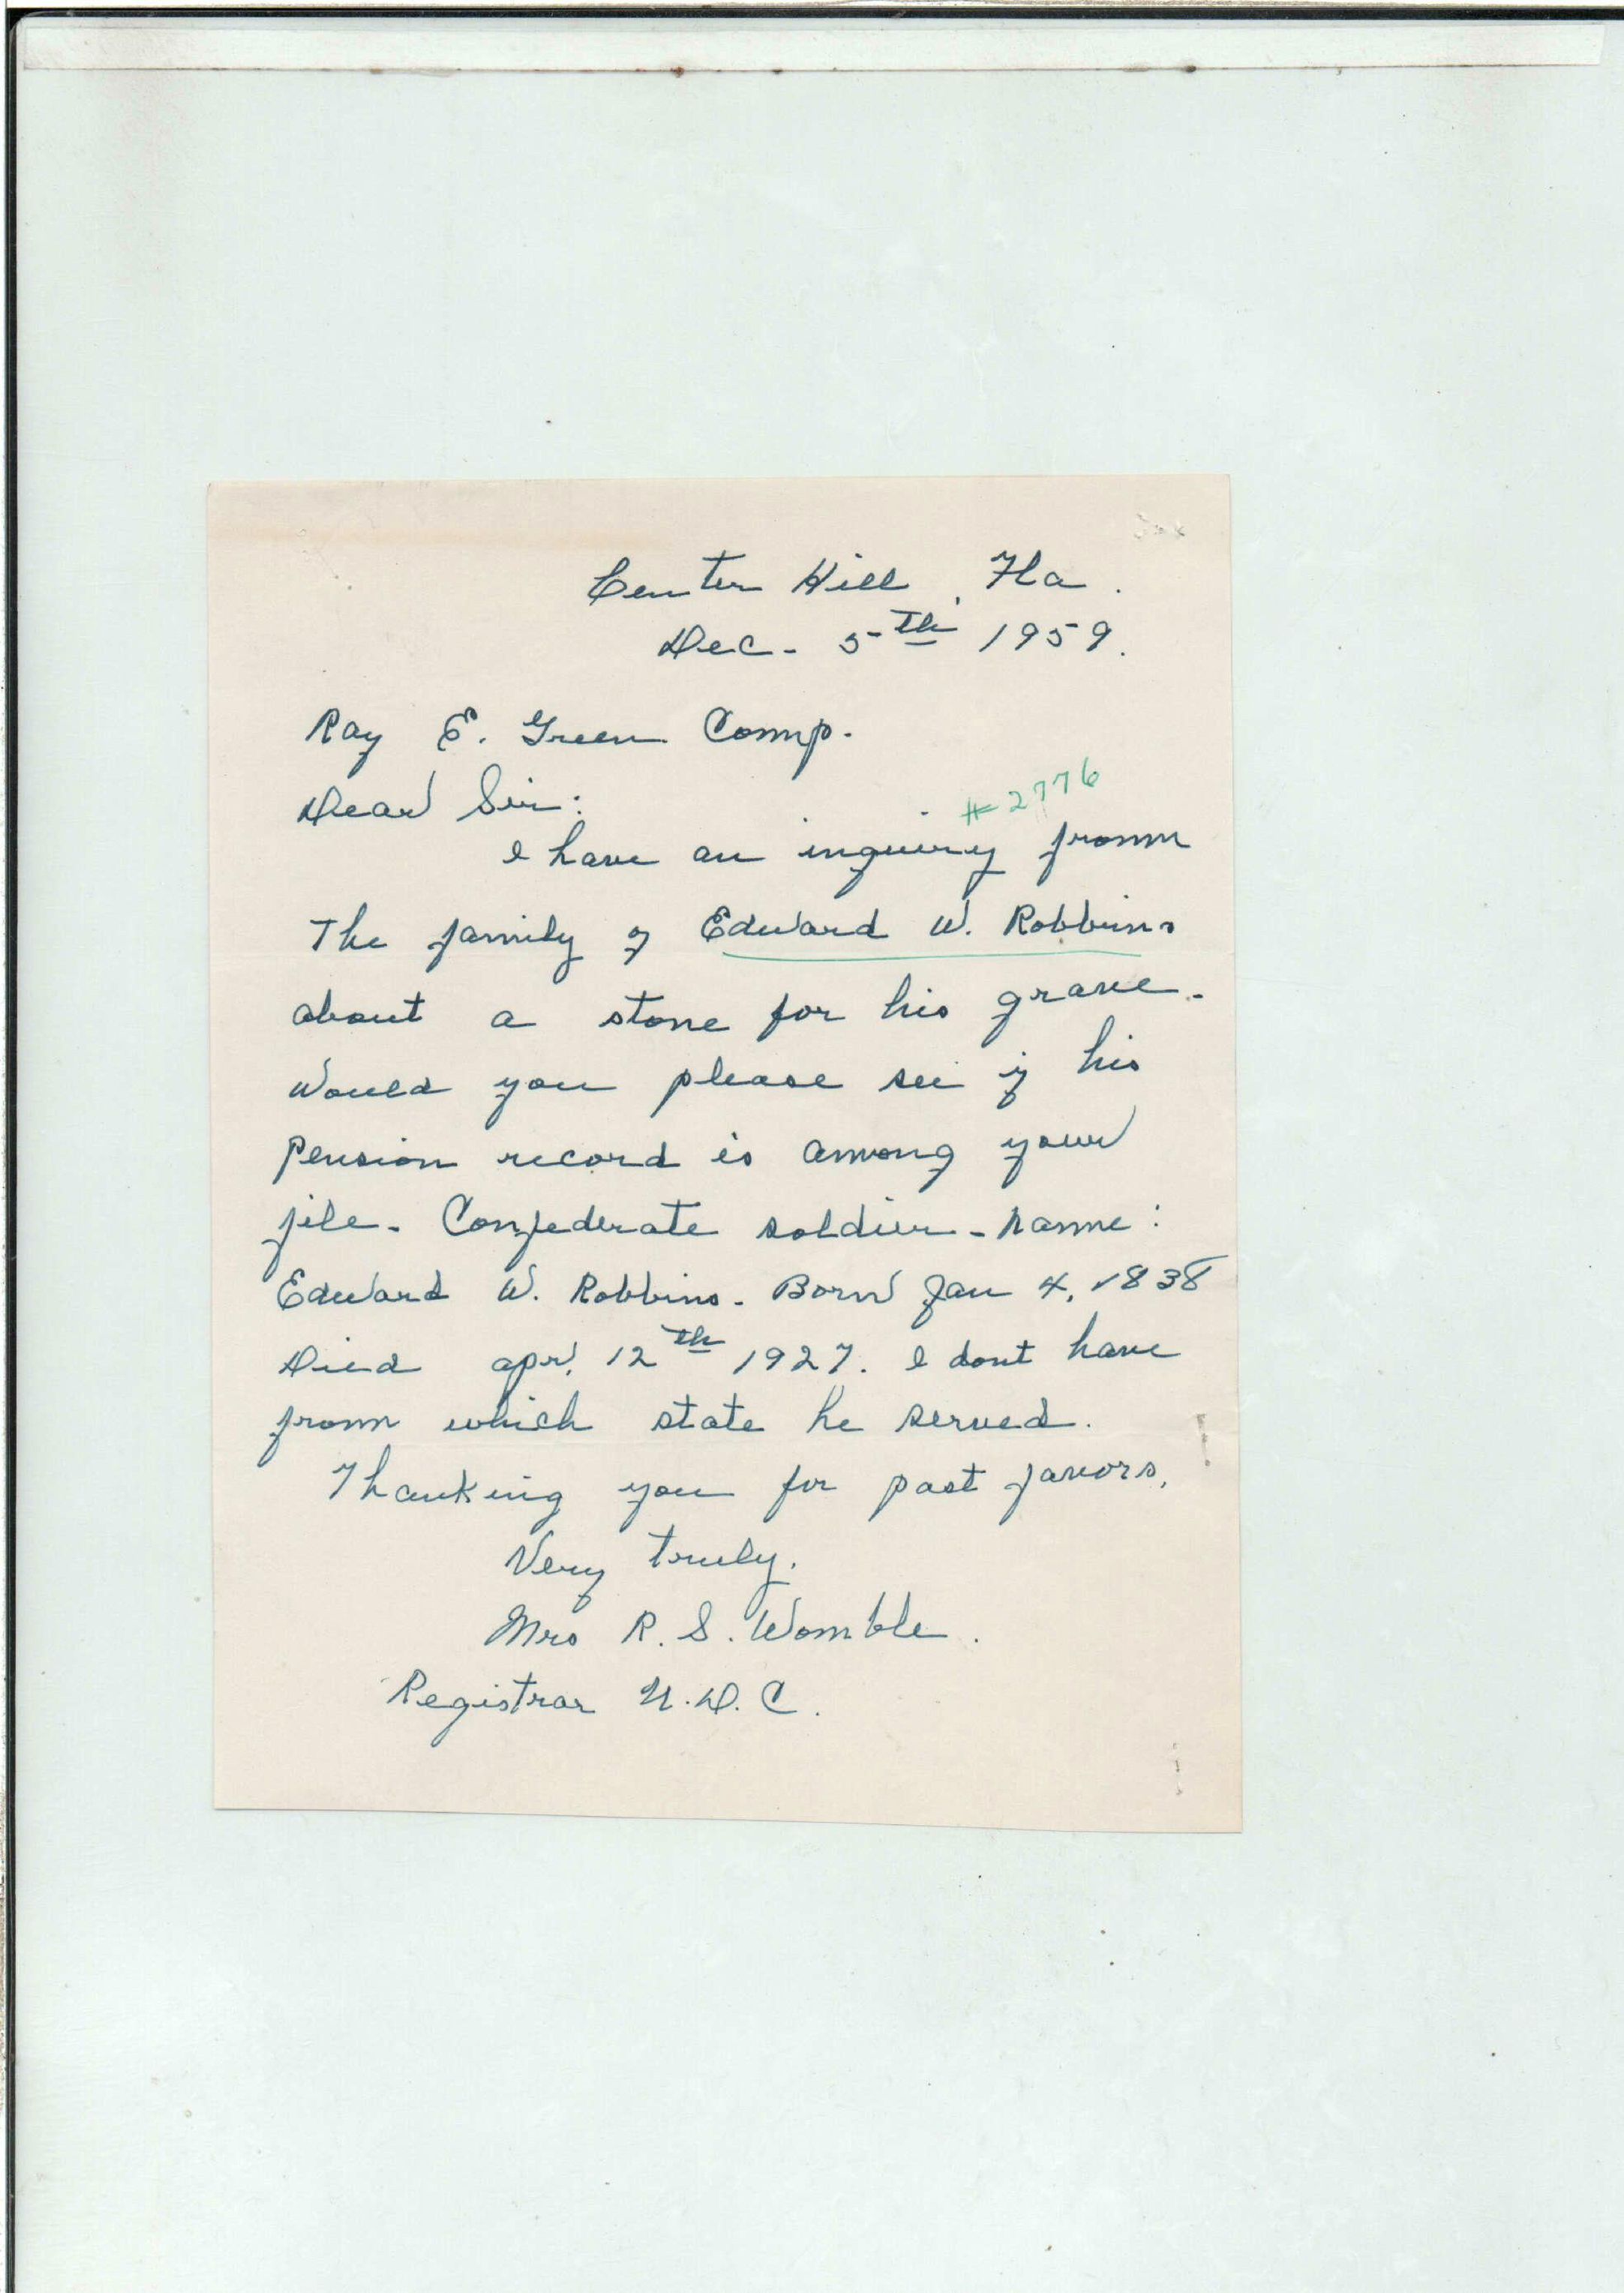 Center Hill, Fla.
Dec- 5th 1959.
Ray E. Green Comp.
Dear Sir:
#2776
I have an inquiry from
The family of Edward W. Robbins
about a stone for his grave.
Would you please see if his
Pension record is among your
file. Confederate soldier - name:
Edward W. Robbins. Born Jan 4, 1838
Died apr. 12th 1927. I dont have
from which state he served.
Thanking you for past favors,
Very truly.
Mrs R. S. Womble.
Registrar U.D.C.